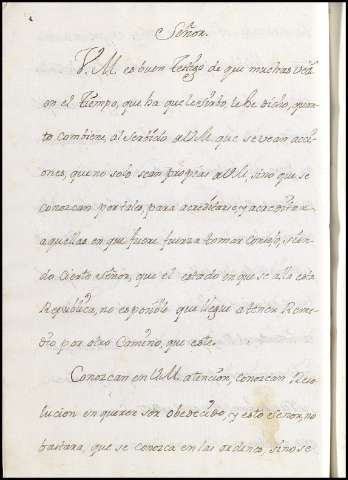 Señor.
V. M. es buen Testigo de que muchas veces
en el Tiempo, que ha que le sirbo, le he dicho, quan-
to combiene, al serbicio de V.M. que se vean acci-
ones, que no solo sean propias de V.M. sino que se
conozcan por tales, para acreditarse, y acreditar
aquellas en que fuere fuerza tomar consejo, sien-
do cierto Señor, que el estado en que se alla esta
Republica, no es posible que llegue a tener Reme-
dio, por otro Camino, que este.
Conozcan en V.M. atencion, conozcan Reso-
lucion en querer ser obedecido, y esto Señor, no
bastara, que se conozca en las ordenes, sino se